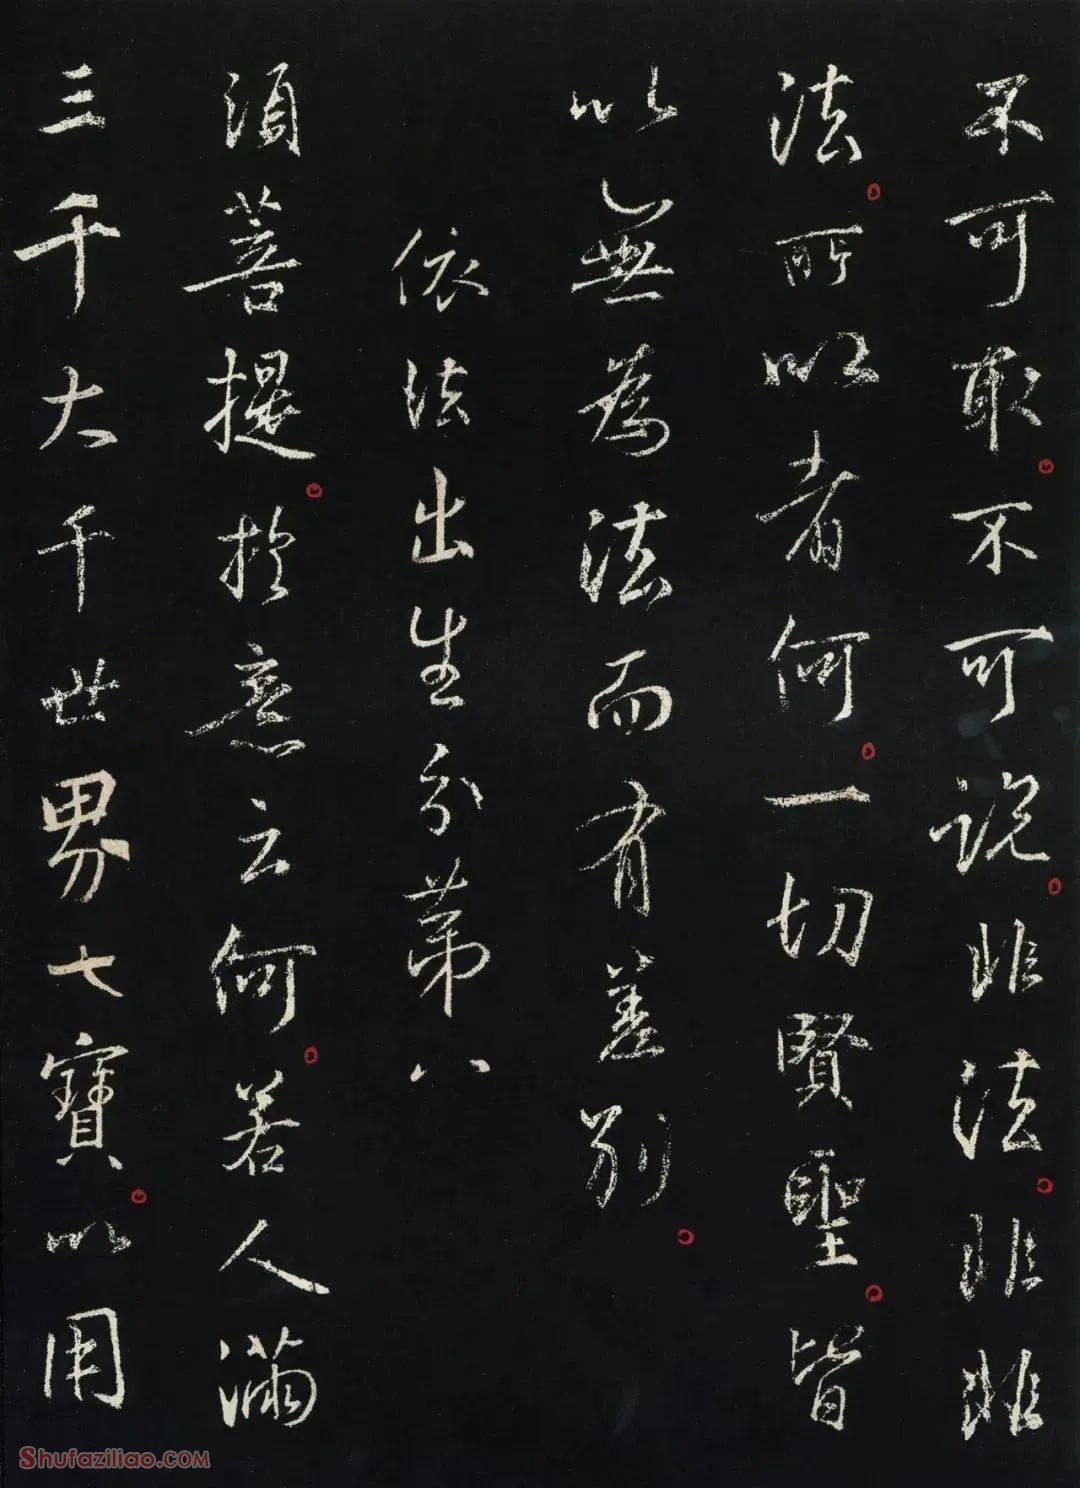 不可取不可說非法非非
法所以者何一切賢聖皆
以無為法而有差別
依法出生分第八
須菩提於意云何若人滿
三千大千世界七寶以用
Shufaziliao.COM